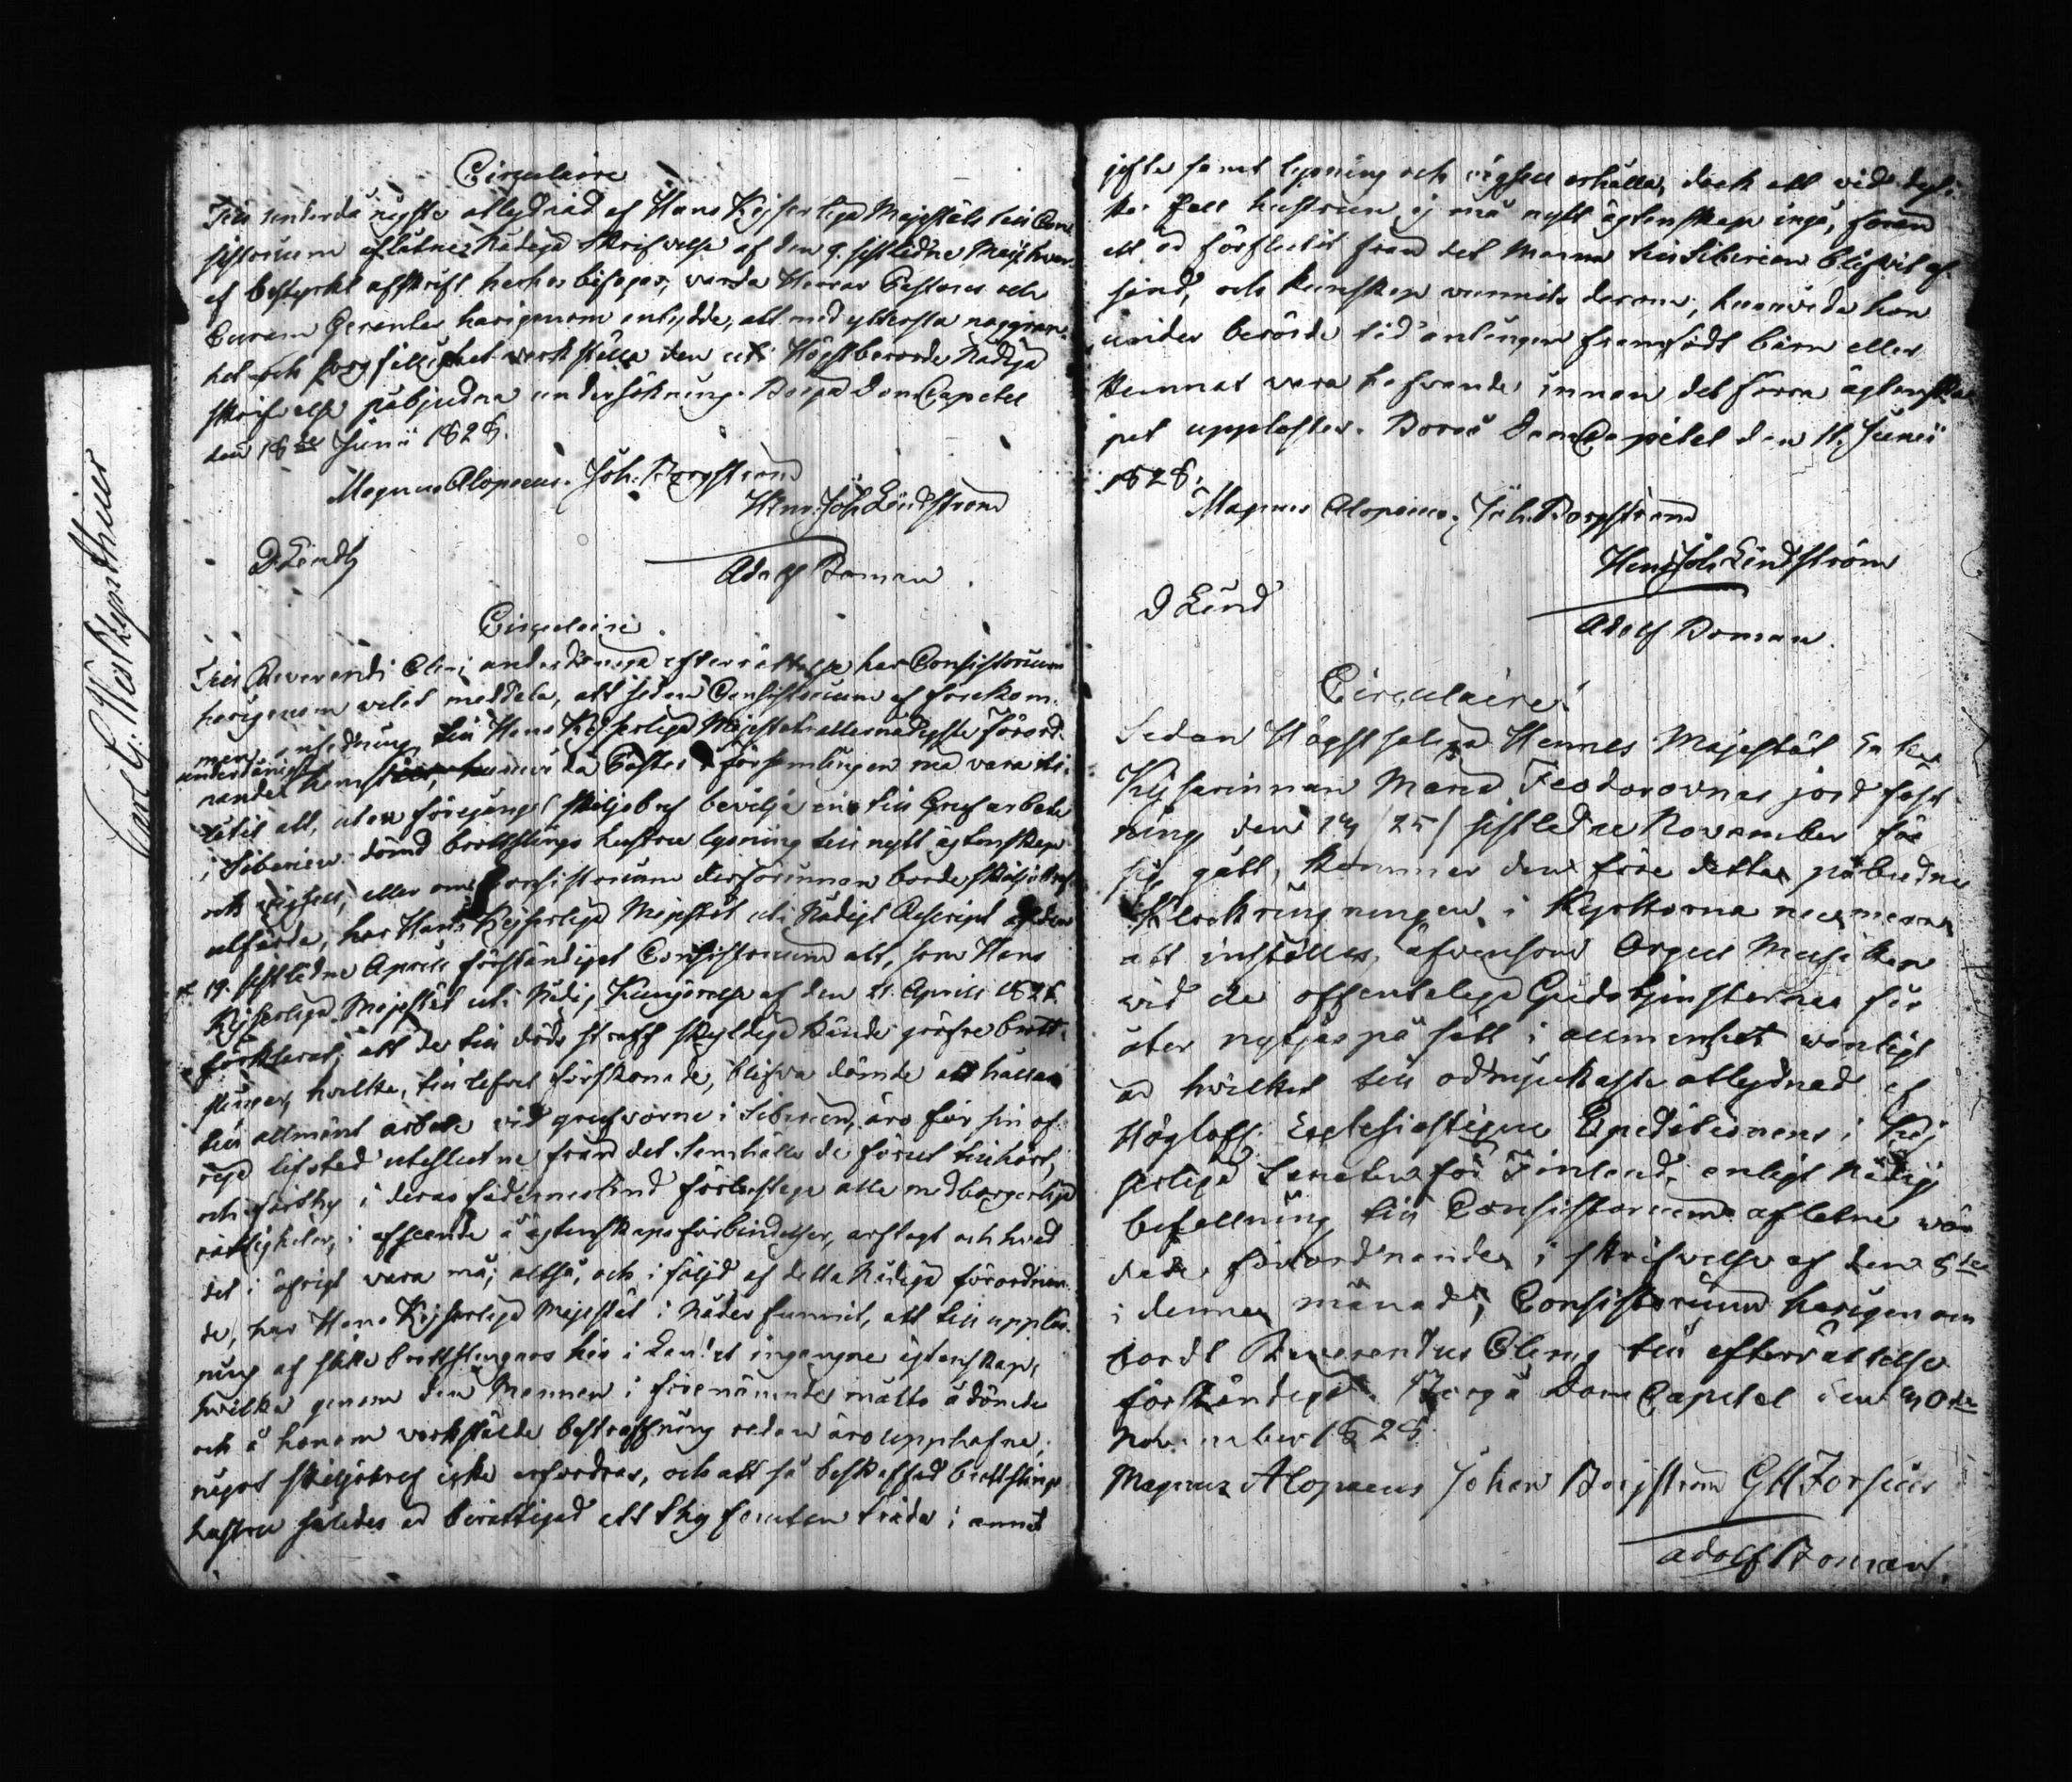 Circulaire
Till underdånigste åtlydnad af Hans Kejserliga Majestäts till Con-
sistorium aflåtne Nådiga Skrifvelse af den 9. sistledne Maji hvar-
af bestyrkt afskrift harhos bifogas, varda Herrar Pastores och
Curam Gerentes harigenom anbudne, att med yttersta noggran-
het och sorgfällighet verkställa den uti Högstberörde Nådiga
Skrifvelse påbjudna undersökning. Borgå DomCapitel
den 18de Junii 1828.
Magnus Alopæus. Joh. Borgström
Henr. Joh. Lindström
D. Lindh
Adolf Boman
Circulaire
Till Reverendi Cleri underdåniga efterrättelse har Consistorium
harigenom velat meddela, att sedan Consistorium af förekom-
men anledning till Hans Kejserliga Majestäts allernådigste förord-
nande underdånigst hemställt, huruvida Pastor i församlingen må vara til-
låtit att, utan föregånget skiljobref bevilja en till Grufarbete
i Siberien dömd brottslings hustru lysning till nytt ägtenskap
och vigsel, eller om Consistorium derförinnan borde skiljobref
utfärda, har Hans Kejserliga Majestät uti Nådigt Rescript af den
19. sistledne Aprill förständigat Consistorium att, som Hans
Kejserliga Majestät uti Nådig Kungörelse af den 21. Aprill 1826
förklarat, att de till döds straff skyldige kände gröfre brott-
slingar, hvilka, till lifvet förskonade, blifva dömde att hållas
till allmänt arbete vid grufvorne i Siberien, äro för sin öf-
riga lifstid uteslutne från det Samhälle de förut tillhört,
och förthy i deras fädernesland förlustige alla medborgerliga
rättigheter, i afseende å ägtenskaps förbindelser, arfstagt och hvad
det i öfrigt vara må; altså, och i följd af detta Nådiga förordnan-
de, har Hans Kejserliga Majestät i Nåder funnit, att till upplös-
ning af slike brottslingars här i Landet ingångne ägtenskap,
hvilka genom den Mannen i förenämnde måtto ådömde
och å honom verkstälde bestraffning redan äro upphäfne,
något skiljobref icke erfordras, och att så beskaffad brottslings
hustru således är berättigad att thy förutan träda i annat
gifte samt lysning och vigsel erhålla, dock att vid dyli-
ka fall hustrun ej må nytt ägtenskap ingå, förrän
ett år förflutit från det Mannen till Siberien blifvit af-
sänd, och kunskap vunnits derom, huruvida hon
under berörde tid antingen framfödt barn eller
kunnat vara hafvande innan det förra ägtenska-
pet upplöstes. Borgå DomCapitel den 18. Junii
1828.
Magnus Alopæus. Joh. Borgström
Henr. Joh. Lindström
D Lind
Adolf Boman.
Circulaire!
Sedan Högstsaliga Hennes Majestät Enke-
Kejsarinnan Maria Feodorovnas jordfäst-
ning den 13/25/ sistledne November för
sig gått, kommer den före detta påbudne
Klockringningen i Kyrkorna nu mera
att inställas, äfvensom Orgel Musiken
vid de offenteliga Gudstjensterna får
åter nytjas på sätt i allmänhet vanligt
är hvilket till ödmjukaste åtlydnad af
Höglofl. Ecclesiastique Expeditionens i Kej-
serliga Senaten för Finland, enligt Nådig
befallning till Consistorium aflåtne vör-
dade förordnande i skrifvelse af den 5te
i denna månad, Consistorium härigenom
bordt Reverendus Clerus till efterrättelse
förständiga. Borgå Dom Capitel den 10de
November 1828.
Magnus Alopæus Johan Borgström GM Forsius
Adolf Boman.
Carl G: Westzynthius